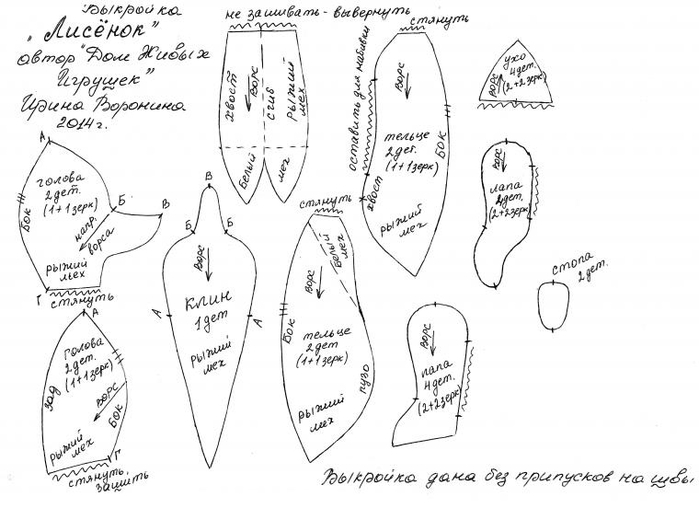 Выкройка
„Лисёнок"
автор "Дом Живых
Игрушек"
Ирина Воронина
2014г.
не зашивать - вывернуть
хвост
ворс
сгиб
рыжий
мех
белый
мех
стянуть
оставить для набивки
ворс
тельце
2дет.
(1+1зерк)
Бок
хвост
рыжий
мех
ворс
ухо
4дет.
(2+2зерк)
А
голова
2дет.
(1+1зерк)
Бок
Б
В
напр.
ворса
рыжий
мех
Г
стянуть
В
Б
Б
ворс
А
А
клин
1дет
рыжий
мех
стянуть
белый
мех
ворс
Бок
тельце
2дет
(1+1зерк)
пузо
рыжий
мех
ворс
лапа
4дет.
(2+2зерк)
стопа
2дет.
А
голова
2дет.
(1+1зерк)
зад
ворс
Бок
рыжий
мех
Г
стянуть,
зашить
ворс
лапа
4дет.
(2+2зерк)
Выкройка дана без припусков на швы.